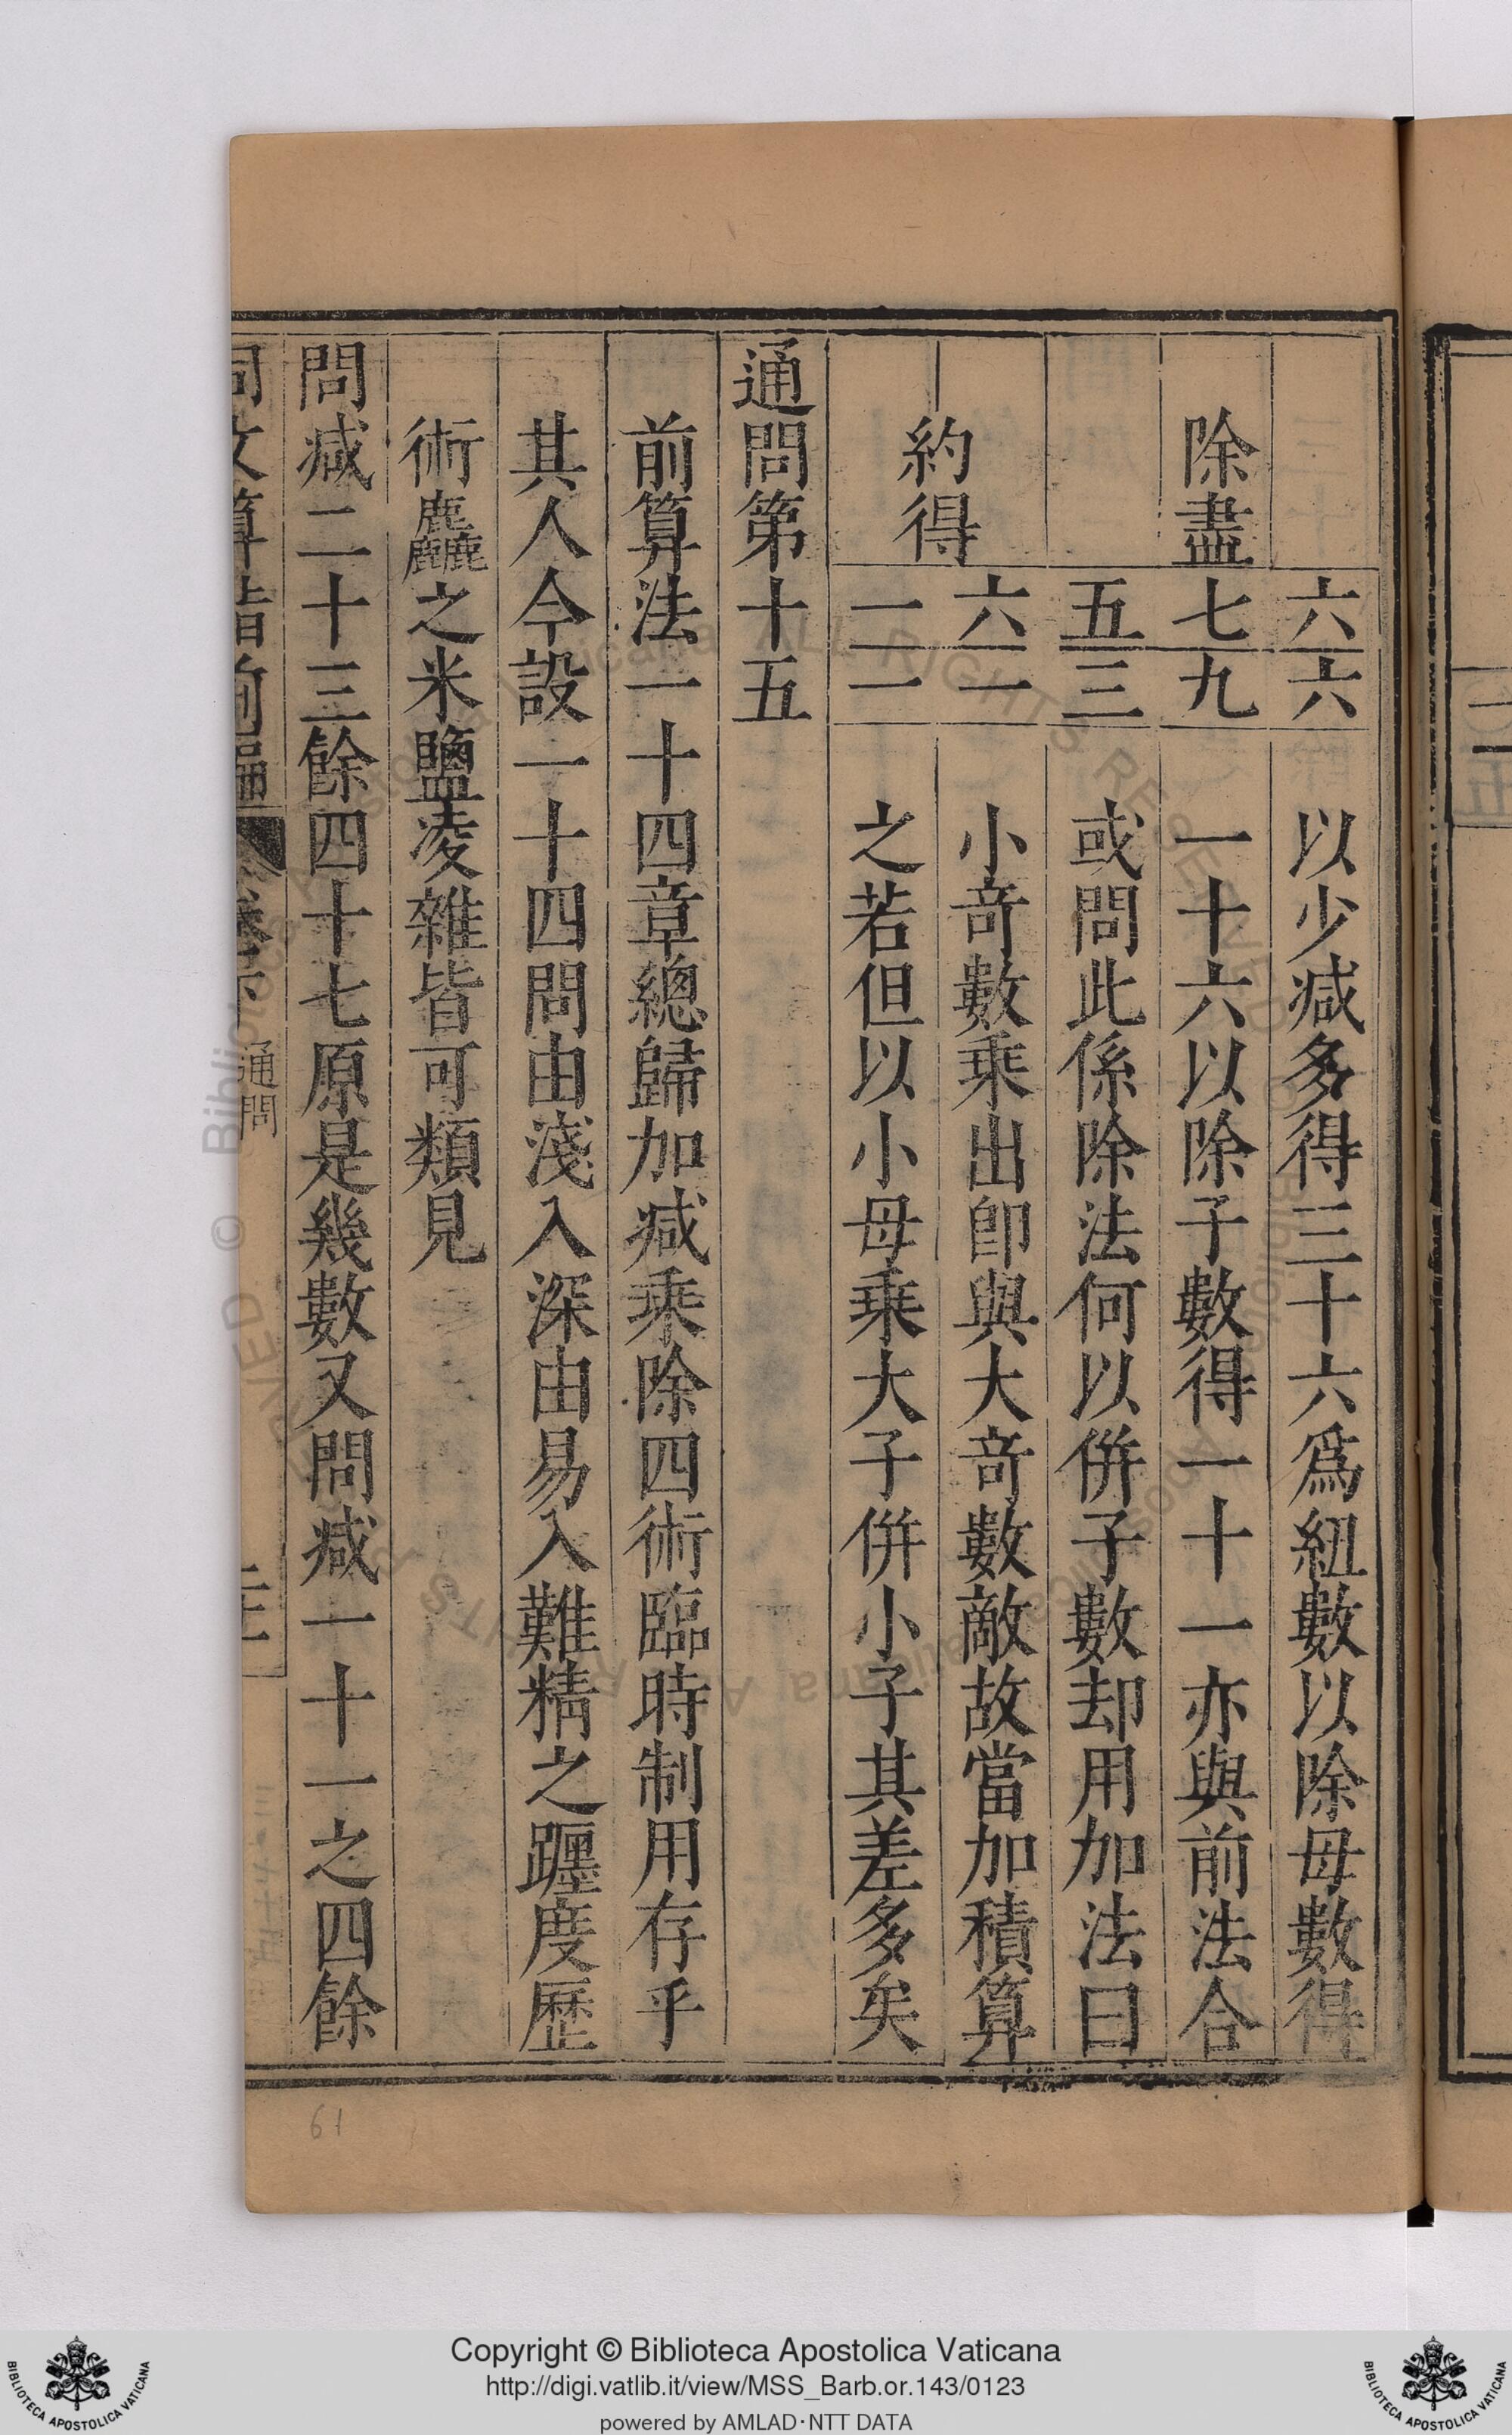 六六　以少減多得三十六爲紐數以除母數得
除盡　七九　一十六以除子數得一十一亦與前法合
五三　或問此係除法何以併子數却用加法曰
約得　六一　小奇數乘出卽與大奇數敵故當加積算
一一　之若但以小母乘大子併小子其差多矣
通問第十五
前算法一十四章總歸加減乘除四術臨時制用存乎
其人今設一十四問由淺入深由易入難精之躔度歷
術麤之米鹽凌雜皆可類見
問減二十三餘四十七原是幾數又問減一十一之四餘
同文算指前編　卷下　通問
61
Copyright © Biblioteca Apostolica Vaticana
http://digi.vatlib.it/view/MSS_Barb.or.143/0123
powered by AMLAD·NTT DATA
BIBLIOTECA APOSTOLICA VATICANA
BIBLIOTECA APOSTOLICA VATICANA